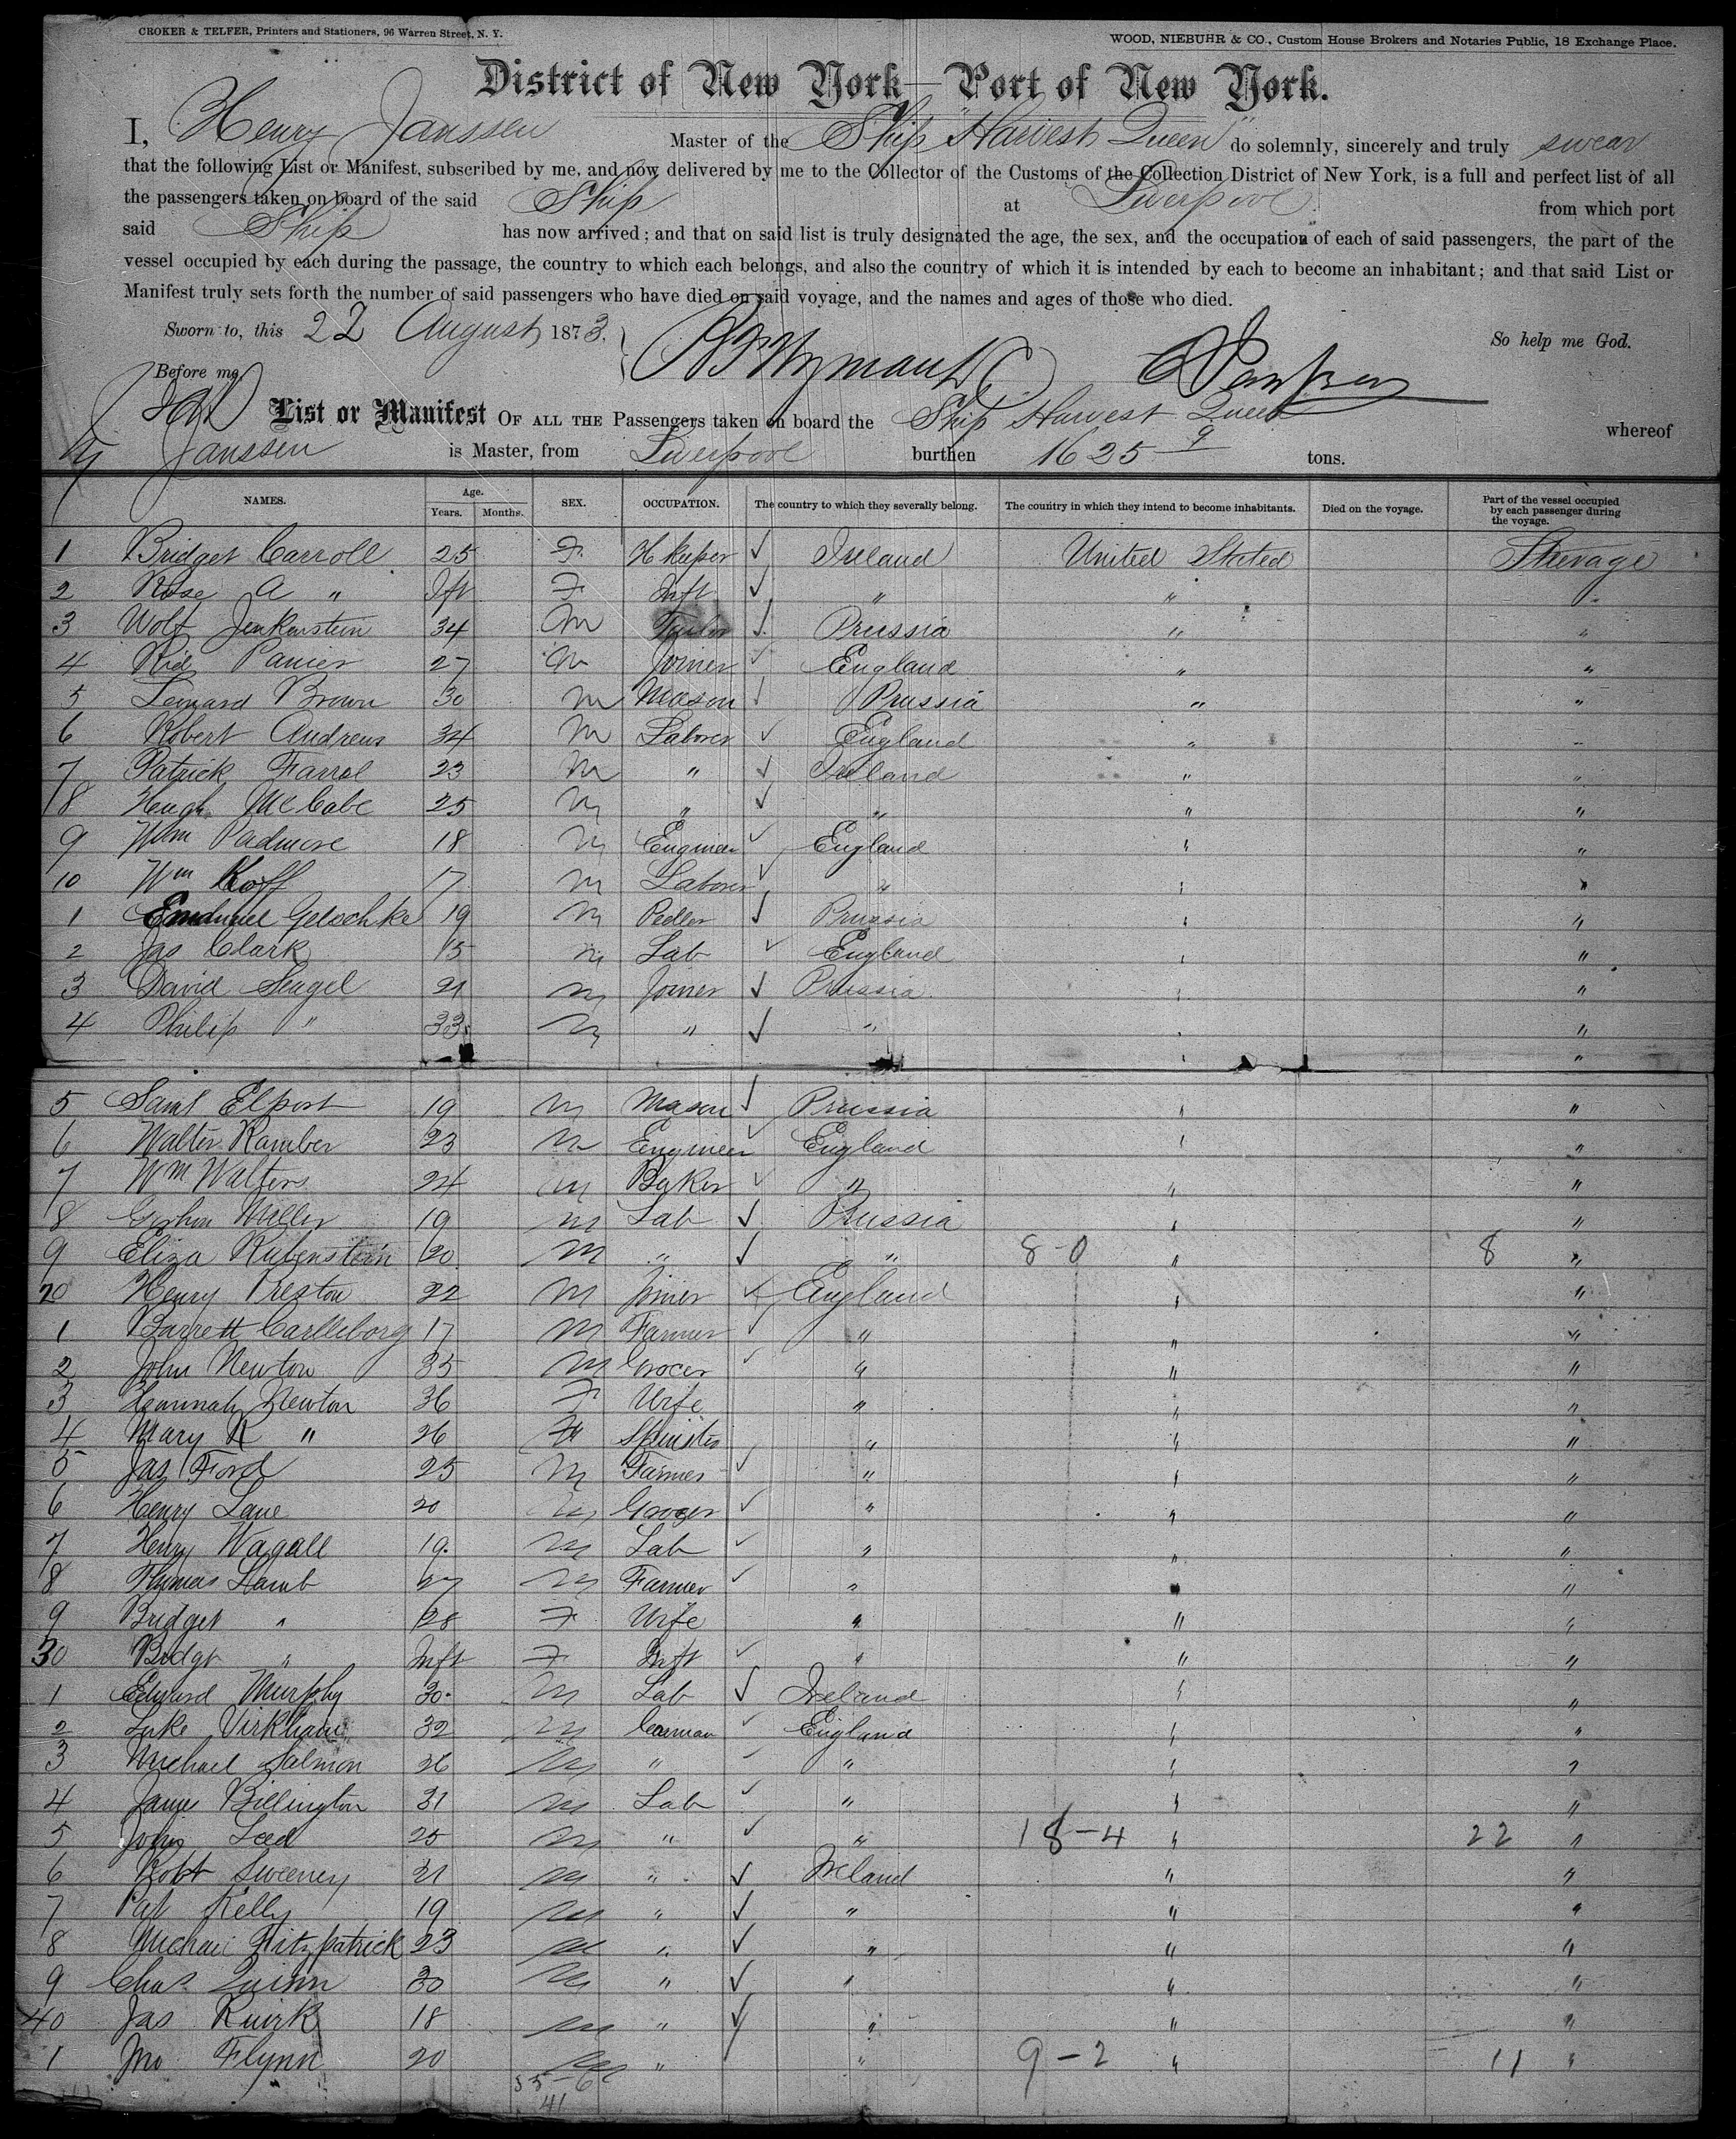 CROKER & TELFER, Printers and Stationers, 96 Warren Street, N. Y. WOOD, NIEBUHR & CO., Custom House Brokers and Notaries Public, 18 Exchange Place.
District of New York—Port of New York.
I, Henry Janssen Master of the Ship "Harvest Queen" do solemnly, sincerely and truly swear
that the following List or Manifest, subscribed by me, and now delivered by me to the Collector of the Customs of the Collection District of New York, is a full and perfect list of all
the passengers taken on board of the said Ship at Liverpool from which port
said Ship has now arrived; and that on said list is truly designated the age, the sex, and the occupation of each of said passengers, the part of the
vessel occupied by each during the passage, the country to which each belongs, and also the country of which it is intended by each to become an inhabitant; and that said List or
Manifest truly sets forth the number of said passengers who have died on said voyage, and the names and ages of those who died.
Sworn to, this 22 August 1873. So help me God.
Before me,
List or Manifest OF ALL THE Passengers taken on board the Ship Harvest Queen whereof
Janssen is Master, from Liverpool burthen 1625 9 tons.
NAMES. Age. Years. Months. SEX. OCCUPATION. The country to which they severally belong. The country in which they intend to become inhabitants. Died on the voyage. Part of the vessel occupied by each passenger during the voyage.
1 Bridget Carroll 25 F H keeper ✓ Ireland United States Steerage
2 Rose A " Ift F Inft ✓ " " "
3 Wolf Jenkenstein 34 M Tailor ✓ Prussia " "
4 27 M Joiner ✓ England " "
5 Leonard Brown 30 M Mason ✓ Prussia " "
6 Robert Andrews 34 M Laborer ✓ England " "
7 Patrick Farrol 23 M " ✓ Ireland " "
8 Hugh McCabe 25 M " ✓ " " "
9 Wm Padmore 18 M Engineer ✓ England " "
10 Wm Koff 17 M Laborer ✓ " " "
1 Emanuel Geloschke 19 M Pedler ✓ Prussia " "
2 Jas Clark 15 M Lab ✓ England " "
3 David Seagel 21 M Joiner ✓ Prussia " "
4 Philip " 33 M " ✓ " " "
5 Saml Elport 19 M Mason ✓ Prussia " "
6 Walter Ramber 23 M Engineer ✓ England " "
7 Wm Walters 24 M Baker ✓ " " "
8 Miller 19 M Lab ✓ Prussia " "
9 Eliza Rubenstein 20 M " ✓ " 8-0 " 8 "
20 Henry Preston 22 M Joiner ✓ England " "
1 Barrett Carlleborg 17 M Farmer ✓ " " "
2 John Newton 35 M Grocer ✓ " " "
3 Hannah Newton 36 F Wife " " "
4 Mary R " 26 F Spinster " " "
5 Jas Ford 25 M Farmer ✓ " " "
6 Henry Lane 20 M Grocer ✓ " " "
7 Henry Wagall 19 M Lab ✓ " " "
8 Thomas Lamb 27 M Farmer ✓ " " "
9 Bridget " 28 F Wife " " "
30 Bridgt " Inft F Inft ✓ " " "
1 Edward Murphy 30 M Lab ✓ Ireland " "
2 Luke Virkham 32 M Carman ✓ England " "
3 Michael Salmon 26 M " ✓ " " "
4 James Billington 31 M Lab ✓ " " "
5 John Leed 25 M " ✓ " 18-4 " 22 "
6 Robt Sweeney 21 M " ✓ Ireland " "
7 Pat Kelly 19 M " ✓ " " "
8 Michael Fitzpatrick 23 M " ✓ " " "
9 Chas Quinn 30 M " ✓ " " "
40 Jas Kuirk 18 M " ✓ " " "
1 Jno Flynn 20 M " " 9-2 " 11 "
35-6
41